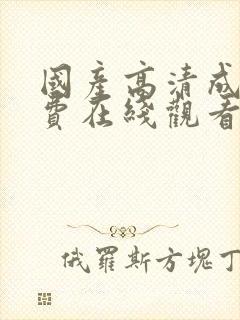 國產高清成
費在綫觀看
俄羅斯方塊丁